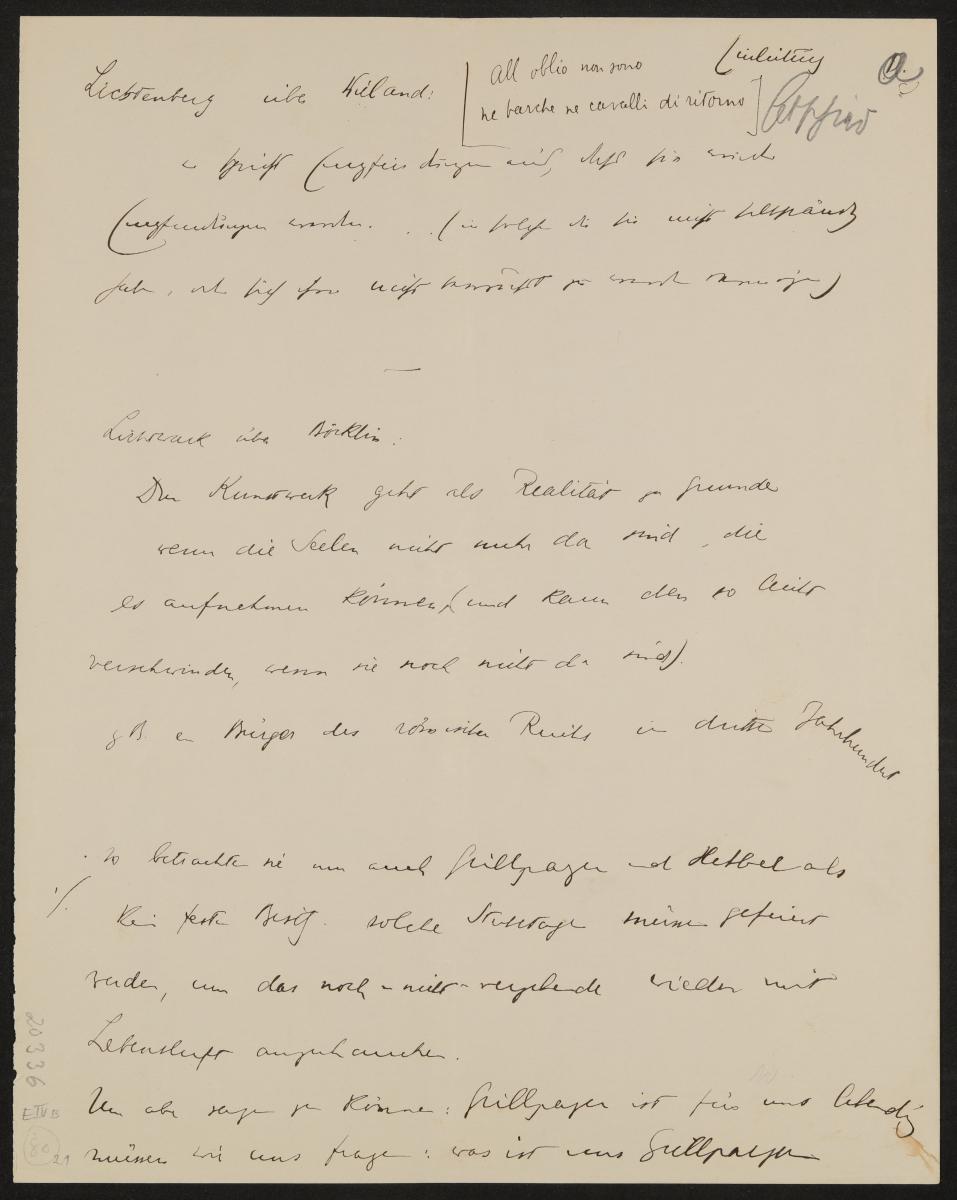 Einleitung
a
Lichtenberg über Wieland:
[All oblio non sono
ne barche ne cavalli di ritorno]
er spricht Empfindungen aus, daß sie wieder
Empfindungen werden. . . (in solche die sie nicht selbständig
haben, oder sich ihrer nicht bewußt zu werden vermögen)
—
Lichtwark über Böcklin:
Das Kunstwerk geht als Realität zu grunde
wenn die Seelen nicht mehr da sind, die
es aufnehmen können (und kann eben so leicht
verschwinden, wenn sie noch nicht da sind).
z B. ein Bürger des römischen Reichs im dritten Jahrhundert
so betrachten sie nun auch Grillparzer und Hebbel als
Kein fester Besitz. solche Festtage müssen gefeiert
werden, um das noch-nicht-vergehende wieder mit
Lebensluft anzuhauchen.
Um aber sagen zu können: Grillparzer ist für uns lebendig
müssen wir uns fragen: was ist uns Grillparzer
20336
E IV B
21